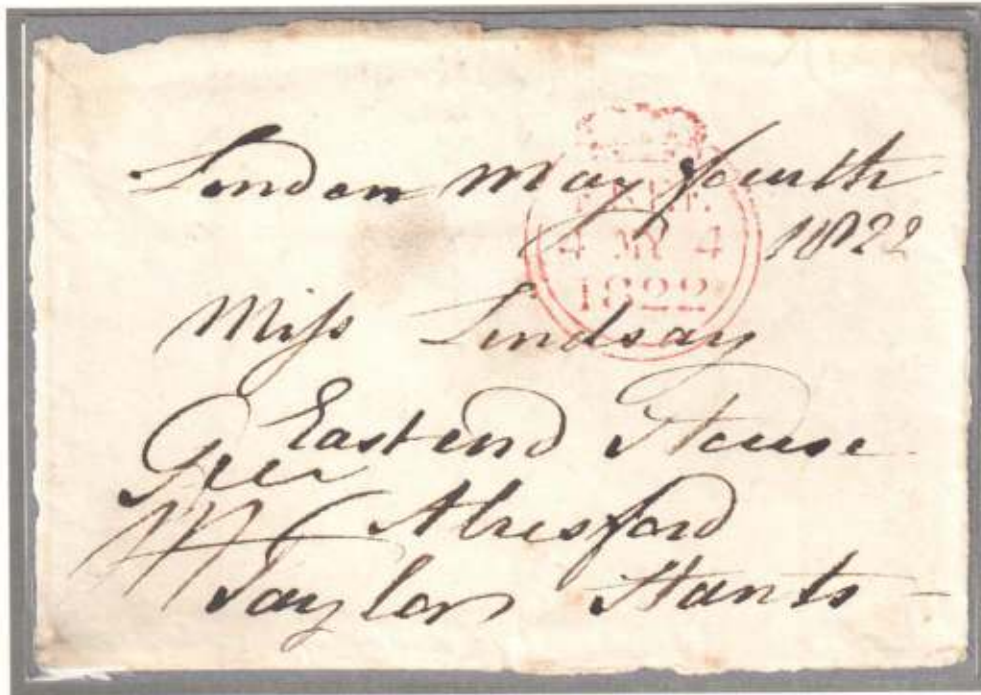 London May fourth
1822
FREE
4 MY 4
1822
Miss Lindsay
East end House
Alresford
Taylor Hants